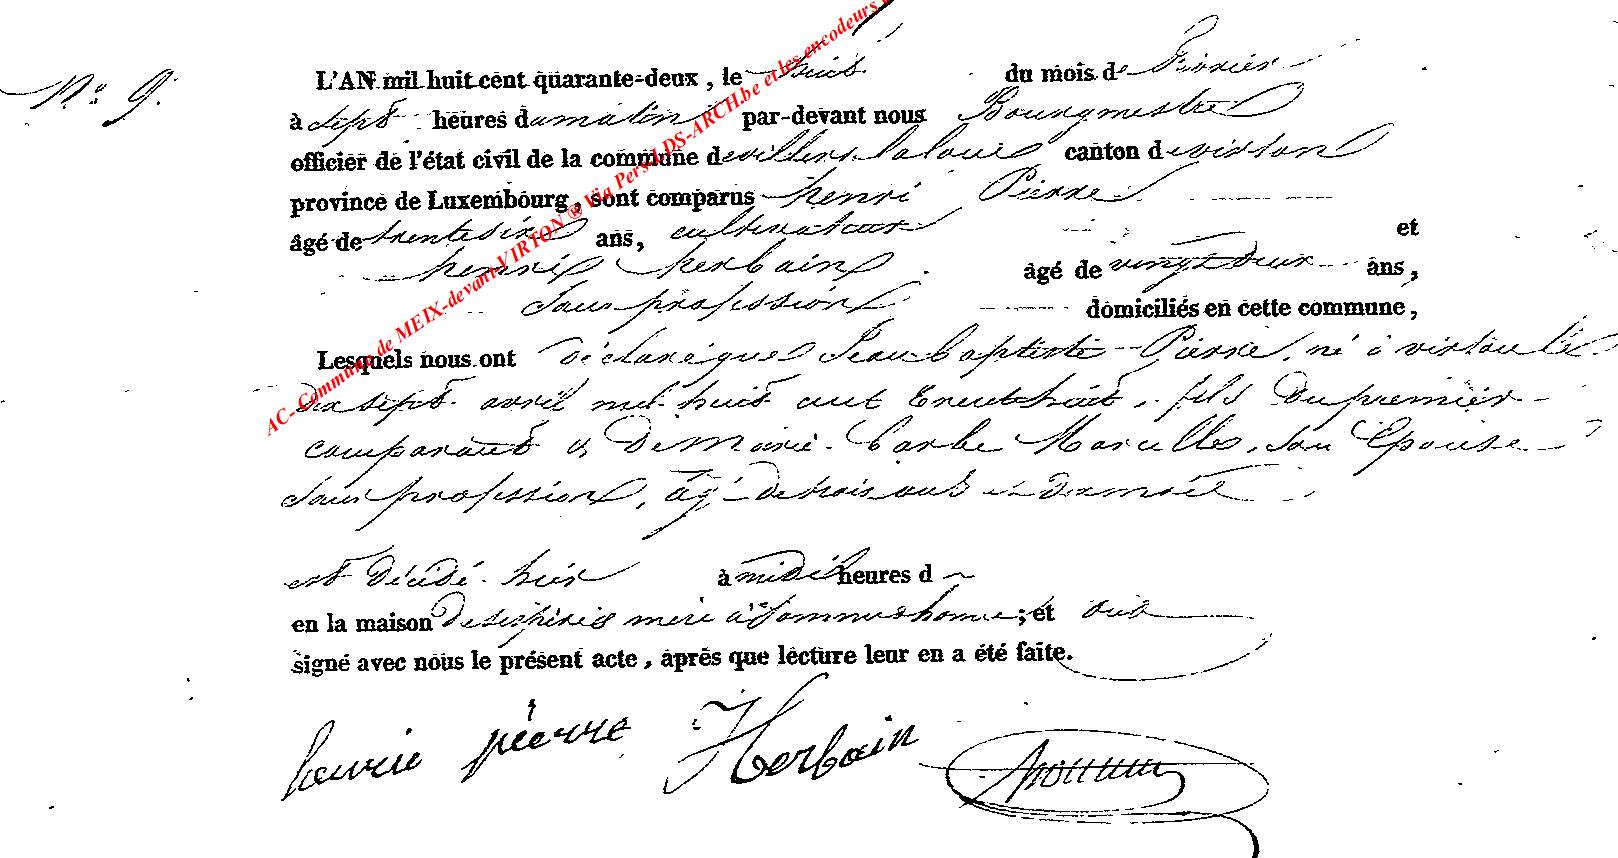 N° 9.
L'AN mil huit cent quarante-deux, le huit du mois de Février
à sept heures du matin par-devant nous Bourgmestre
officier de l'état civil de la commune de villers la loue canton de virton
province de Luxembourg, sont comparus henri Pierre
âgé de trente six ans, cultivateur et
henri herbain âgé de vingt deux ans,
sans profession domiciliés en cette commune,
Lesquels nous ont déclaré que Jean baptiste Pierre, né à virton le
dix sept avril mil huit cent trente huit, fils du premier
comparant & de Marie barbe Marcelle, son Epouse
sans profession, âgé de trois ans et dix mois
est décédé hier à midi heures d
en la maison de ses père & mère à Sommethonne; et ont
signé avec nous le présent acte, après que lecture leur en a été faite.
henrie pierre Herbain
AC-Commune de MEIX-devant-VIRTON ® Via Pers-LDS-ARCH.be et les encodeurs